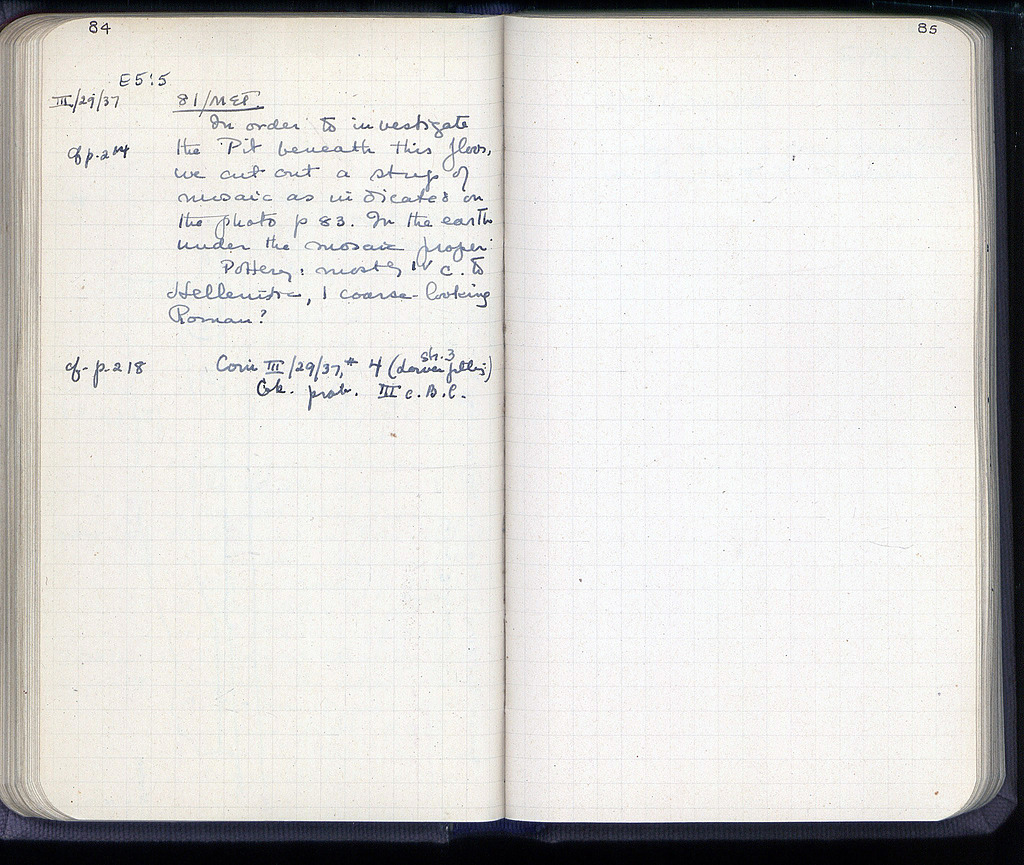 84
85
E5:5
III/29/37
81/ΜΣΤ
In order to investigate
cf p. 214
the Pit beneath this floor,
we cut out a strip of
mosaic as indicated on
the photo p 83. In the earth
under the mosaic proper:
Pottery: mostly IV c. to
Hellenistic, 1 coarse-looking
Roman?
cf. p. 218
Coin III/29/37, # 4 (sh. 3
Gk. prob. III c. B.C.